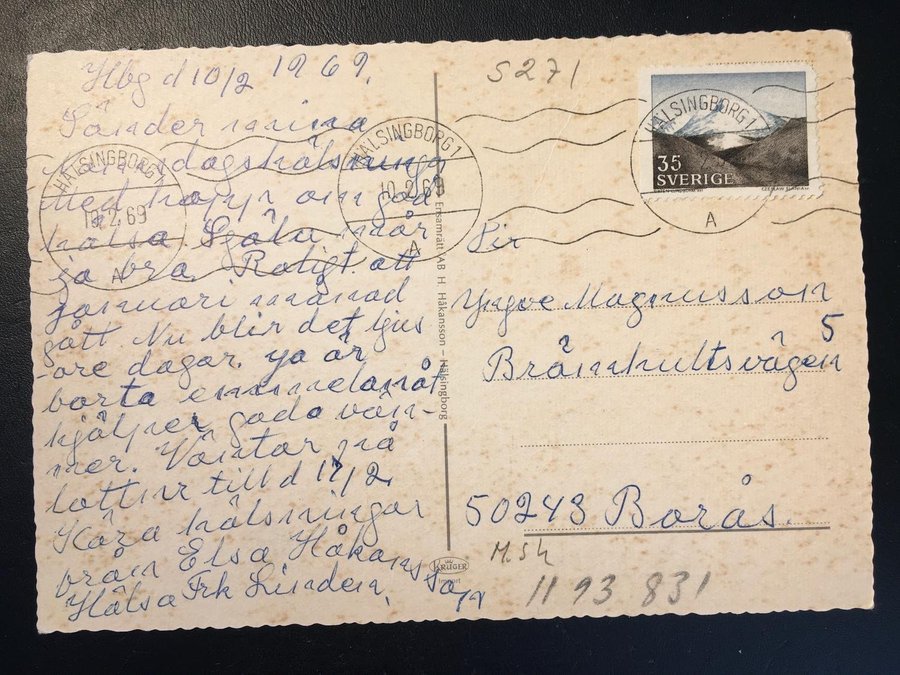 Hbg d 10/2 1969.
Sänder mina
dagshälsningar
med hopp om god
hälsa Själv mår
ja bra. Roligt att
januari månad
gått Nu blir det ljus
are dagar. ja är
borta emmelanåt
hjälper goda vän-
ner. Väntar på
lotten till d 12/2
Kära hälsningar
från Elsa Håkansson
Hälsa Frk Linden,
HÄLSINGBORG 1
10.2.69
A
HÄLSINGBORG 1
10.2.69
A
Ensamrätt AB H. Håkansson – Hälsingborg
KRÜGER
Import
S271
HÄLSINGBORG 1
A
35
SVERIGE
CZESLAW SLANIA SC
Fir
Yngve Magnusson
Brämhultsvägen 5
50243 Borås.
M.Sh
11 93 831